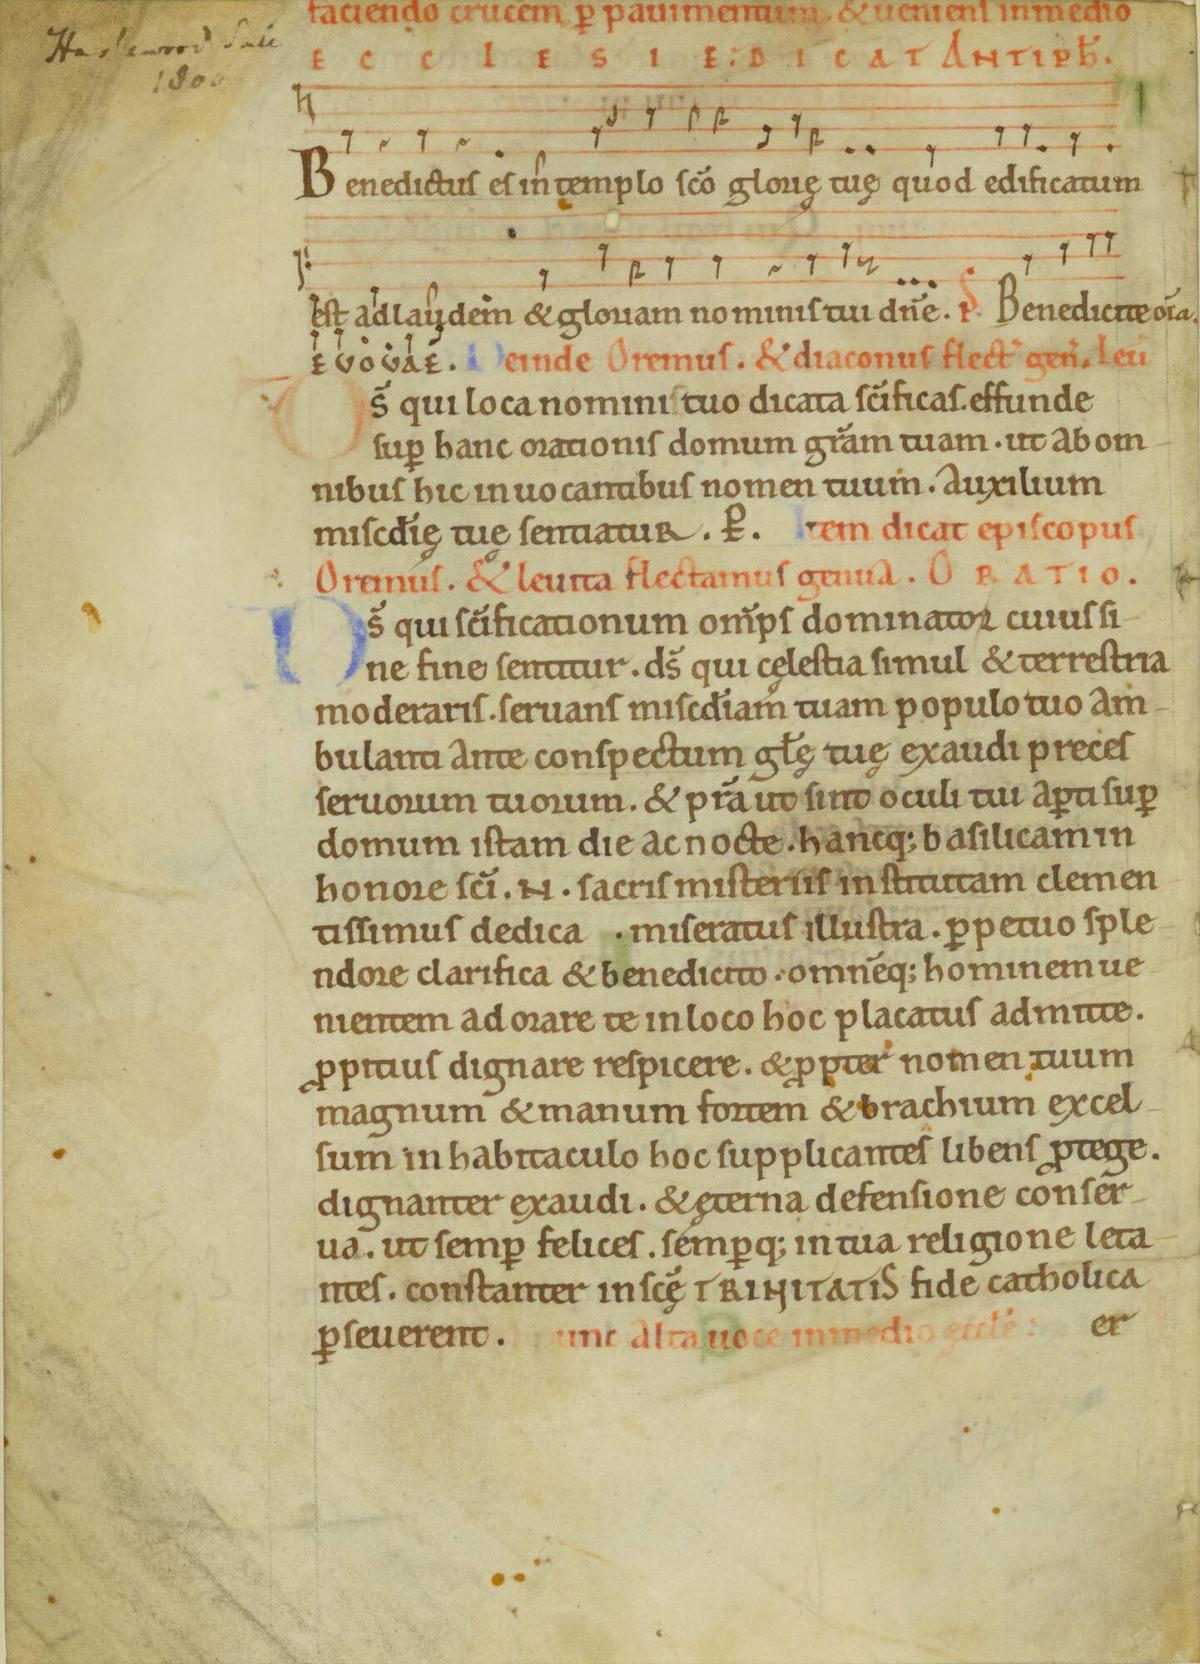 Haslewood Sale
180
faciendo crucem ꝑ pauimentum. & ueniens inmedio
ECCLESIE: DICAT ANTIPĦ.
Benedictus es in templo sc̄o glorię tuę quod edificatum
est ad laudem & gloriam nominis tui dn̄e. P̄. Benedicite om̄a.
EVOVAE. Deinde Oremus. & diaconus flect̄ gen̄. Leu
Ds̄ qui loca nomini tuo dicata sc̄ificas. effunde
suꝑ hanc orationis domum gr̄am tuam. ut ab om-
nibus hic inuocantibus nomen tuum. Auxilium
misc̄dię tuę sentiatur. P̄. Item dicat episcopus
Oremus. & leuita flectamus genua. ORATIO.
Ds̄ qui sc̄ificationum om̄ps dominator cuius si-
ne fine sentitur. ds̄ qui cęlestia simul & terrestria
moderaris. seruans misc̄diam tuam populo tuo am-
bulanti ante conspectum gl̄ę tuę exaudi preces
seruorum tuorum. & pr̄a ut sint oculi tui aꝑti suꝑ
domum istam die ac nocte. hancq; basilicam in
honore sc̄i. N. sacris misteriis institutam clemen
tissimus dedica . miseratus illustra. ꝑpetuo sple-
ndore clarifica & benedicito. omnēq; hominem ue-
nientem adorare te in loco hoc placatus admitte.
ꝓpitius dignare respicere. & ꝓpter nomen tuum
magnum & manum fortem & brachium excel-
sum in habitaculo hoc supplicantes libens ꝓtege.
dignanter exaudi. & ęterna defensione conser-
ua. ut semꝑ felices. semꝑq; in tua religione leta-
ntes. constanter in sc̄ę TRINITATIS fide catholica
ꝑseuerent. unc alta uoce in medio eccl̄ę: er